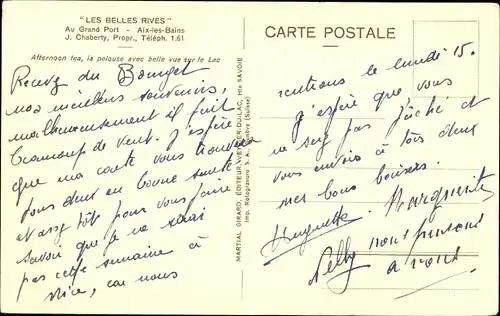 "LES BELLES RIVES"
Au Grand Port - Aix-les-Bains
J. Chaberty, Propr., Téléph. 1.61
Afternoon tea, la pelouse avec belle vue sur le Lac
CARTE POSTALE
Recevez du Bourget
nos meilleurs souvenirs,
malheureusement il fait
beaucoup de vent. J'espère
que ma carte vous trouvera
tous deux en bonne santé
et assez tôt pour vous faire
savoir que je ne serai
pas cette semaine à
Nice, car nous
MARTIAL GIRARD, ÉDITEUR, VEYRIER-DU-LAC, Hte SAVOIE
Imp. Rotogravure S. A. Genève (Suisse)
rentrons le lundi 15.
J'espère que vous
ne serez pas fâché et
vous envoie à tous deux
mes bons baisers.
Huguette. Marguerite
Nelly nous pensons
à vous